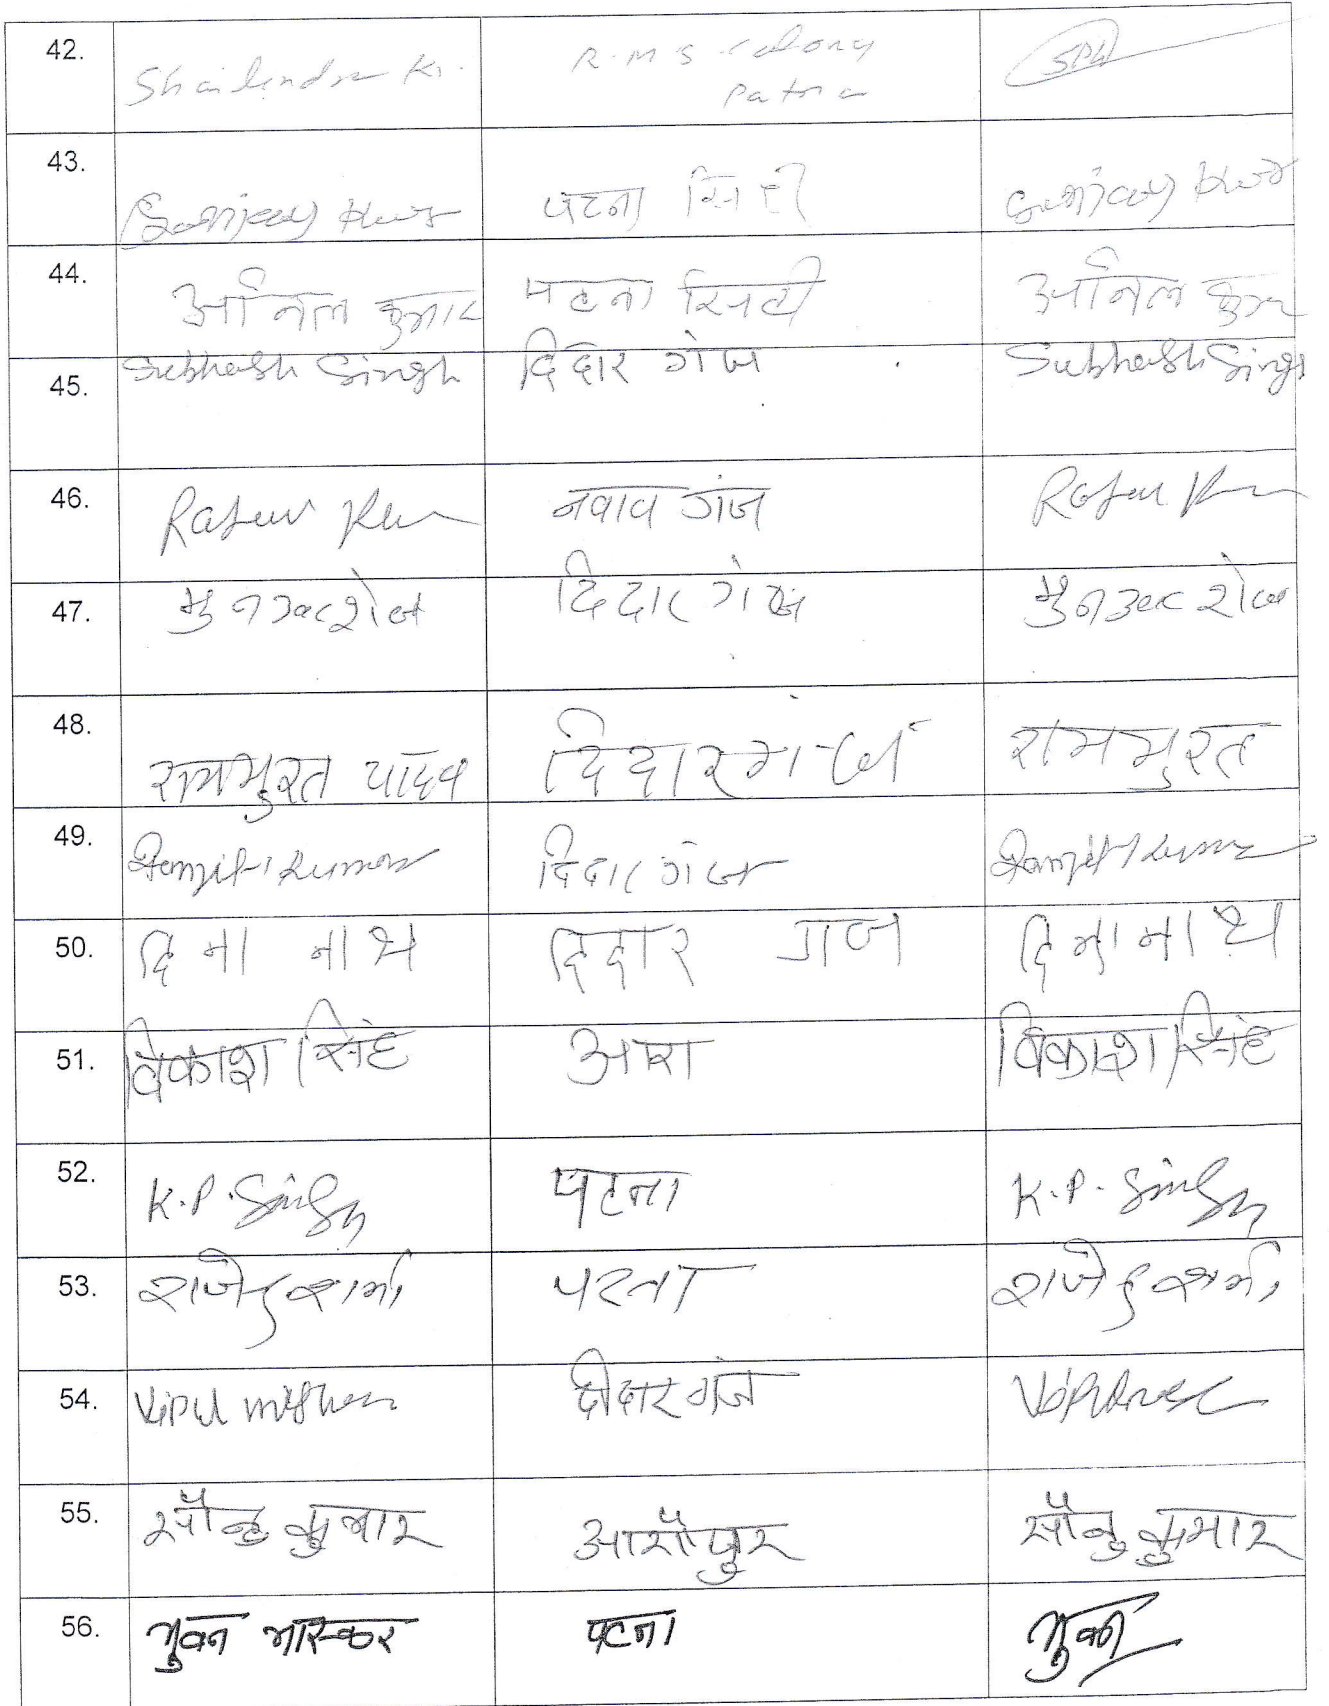 42. Shailendra Kr. R.M.S colony SPH
Patna
43. Sanjay Kur पटना सिटी Sanjay Kur
44. अनिल कुमार पटना सिटी अनिल कुमार
45. Subhash Singh दिदार गंज Subhash Singh
46. नवाव गंज
47. दिदार गंज
48. राममुरत यादव दिदारगंज राममुरत
49. Ranjit Kumar दिदार गंज Ranjit Kumar
50. दिना नाथ दिदार गंज दिना नाथ
51. विकाश सिंह आरा विकाश सिंह
52. K.P. Singh पटना K.P. Singh
53. पटना
54. Vipul mishra दीदार गंज
55. सौनु कुमार सौनु कुमार
56. भुवन भास्कर पटना